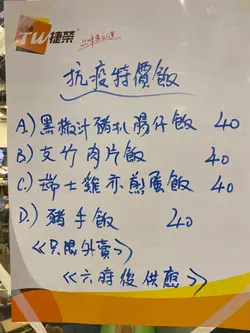 TW捷榮
抗疫特價飯
A.) 黑椒汁豬扒腸仔飯 40
B.) 支竹肉片飯 40
C.) 瑞士雞亦煎蛋飯 40
D.) 豬手飯 40
≪只限外賣≫
≪六時後供應≫